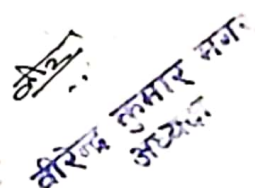 वीरेन्द्र कुमार नगर
अध्यक्ष